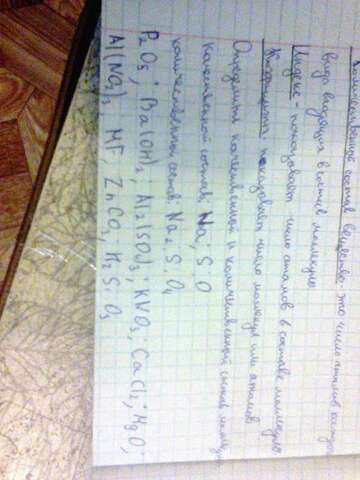 Количественный состав вещества - это число атомов каждого
вида входящих в состав молекулы
Индекс - показывает число атомов в составе молекулы
Коэффициент показывает число молекул или атомов
Определить качественный и количественный состав молекул
Качественный состав: Na; S; O
количественный состав: Na2, S, O4
P2O5; Ba(OH)2; Al2(SO4)3; KNO3; CaCl2; MgO;
Al(NO3)3 MF; ZnCO3; H2SiO3